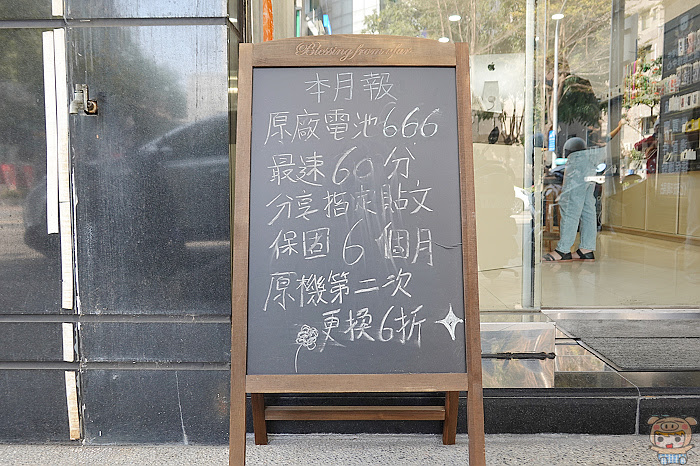 Blessing from star
本月報
原廠電池666
最速60分
分享指定貼文
保固6個月
原機第二次
更換6折